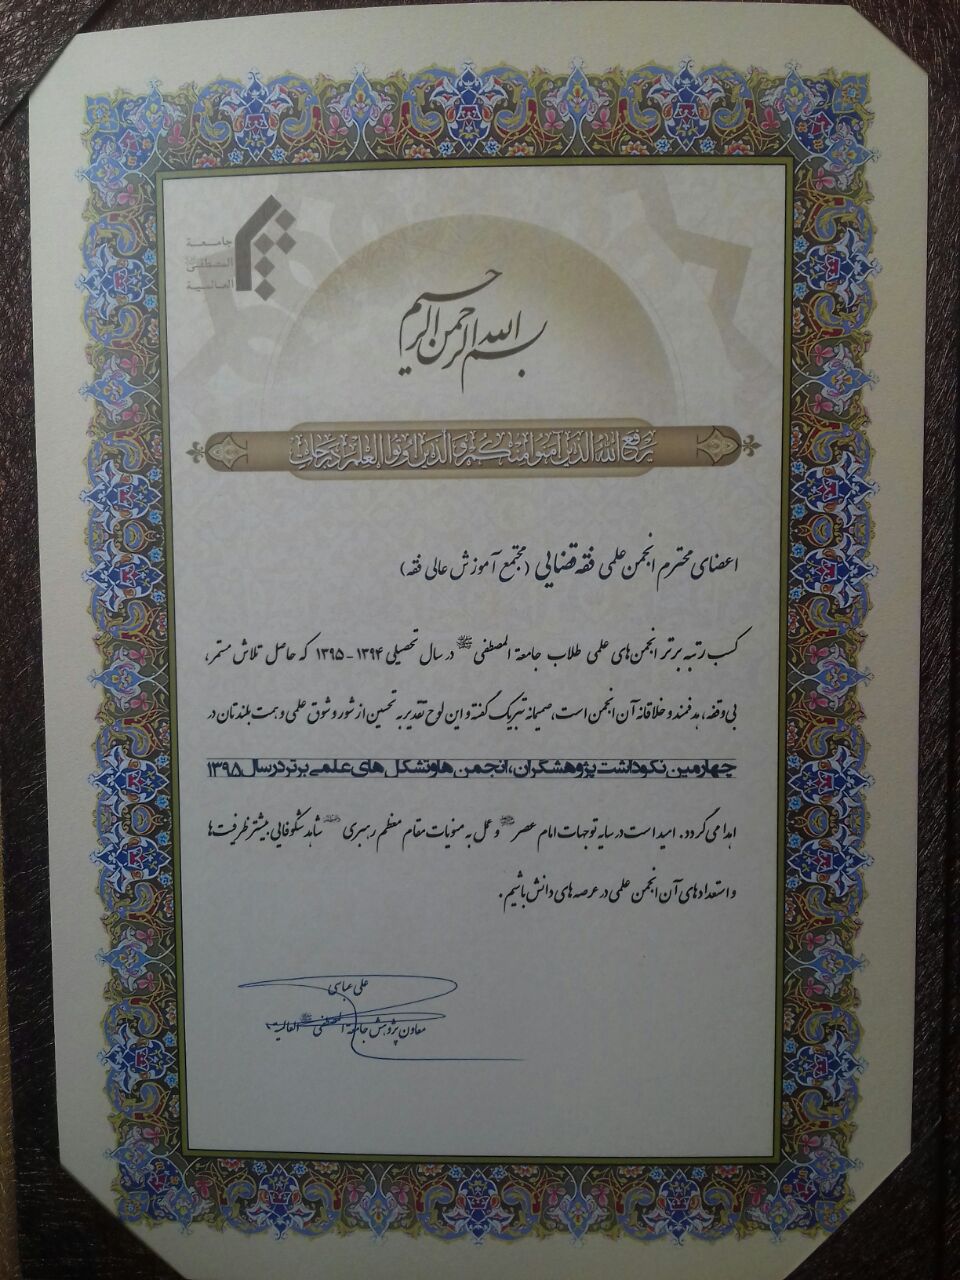 جامعة
المصطفی
العالمیة
بسم الله الرحمن الرحیم
یرفع الله الذین آمنوا منکم و الذین اوتوا العلم درجات
اعضای محترم انجمن علمی فقه قضایی (مجتمع آموزش عالی فقه)
کسب رتبه برتر انجمن‌های علمی طلاب جامعة المصطفی ﷺ در سال تحصیلی ۱۳۹۴-۱۳۹۵ که حاصل تلاش مستمر،
بی‌وقفه، هدفمند و خلاقانه آن انجمن است، صمیمانه تبریک گفته و این لوح تقدیر به تحسین از شور و شوق علمی و همت بلندتان در
چهارمین نکوداشت پژوهشگران، انجمن ها و تشکل های علمی برتر در سال ۱۳۹۵
اهدا می گردد. امید است در سایه توجهات امام عصر و عمل به منویات مقام معظم رهبری شاهد شکوفایی بیشتر ظرفیت‌ها
و استعدادهای آن انجمن علمی در عرصه های دانش باشیم.
علی عباسی
معاون پژوهش جامعة المصطفی ﷺ العالمیة